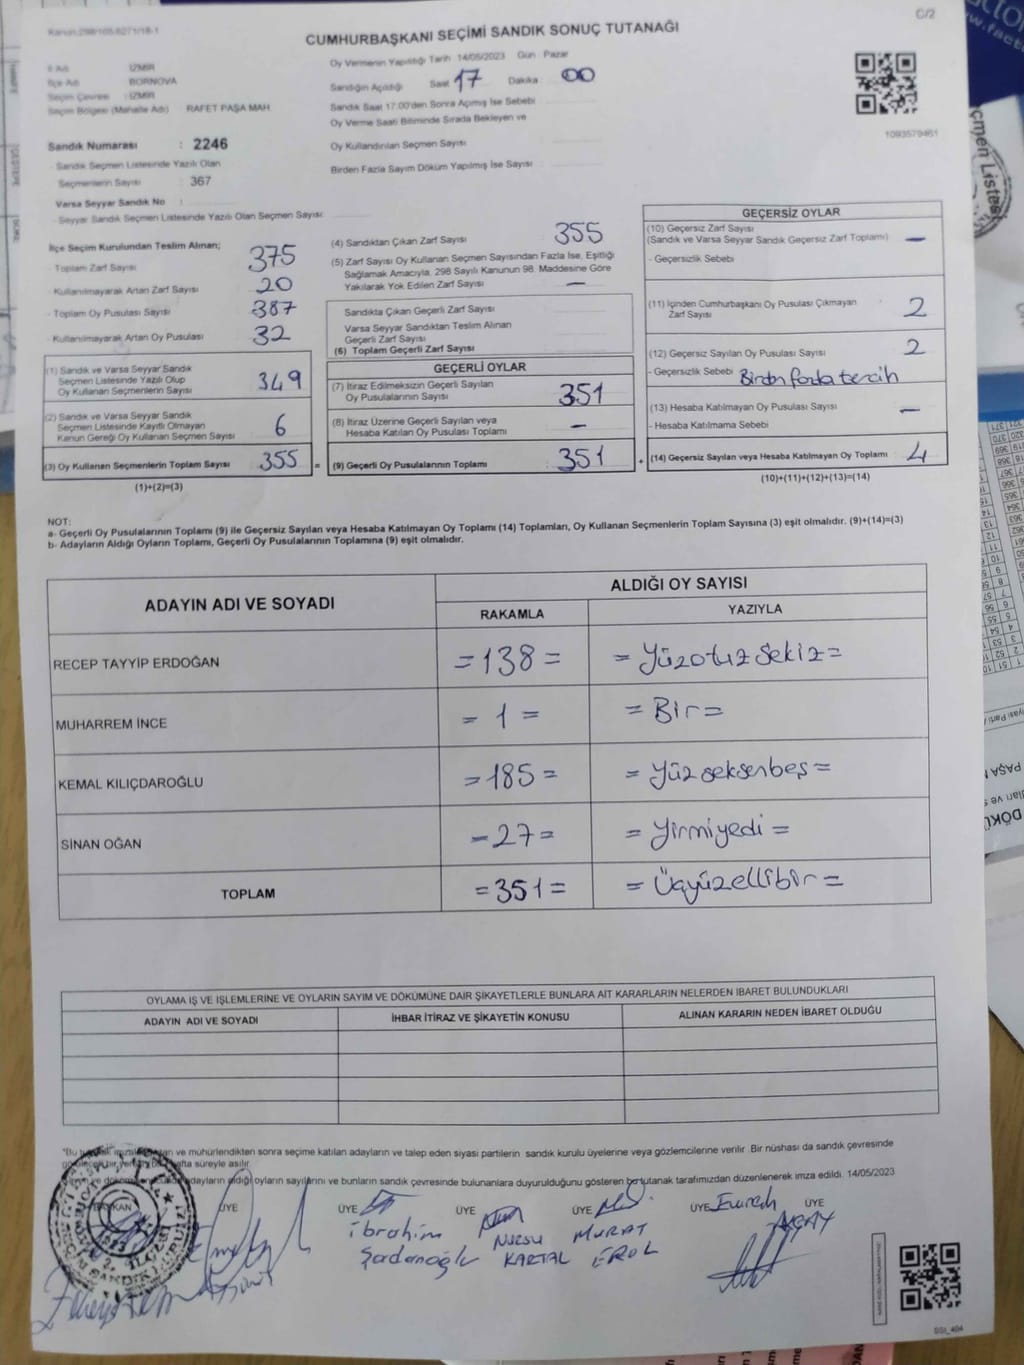 C/2
CUMHURBAŞKANI SEÇİMİ SANDIK SONUÇ TUTANAĞI
İl Adı : İZMİR
İlçe Adı : BORNOVA
Seçim Çevresi : İZMİR
Seçim Bölgesi (Mahalle Adı) : RAFET PAŞA MAH
Sandık Numarası : 2246
- Sandık Seçmen Listesinde Yazılı Olan
Seçmenlerin Sayısı : 367
Varsa Seyyar Sandık No :
- Seyyar Sandık Seçmen Listesinde Yazılı Olan Seçmen Sayısı:
Oy Vermenin Yapıldığı Tarih 14/05/2023 Gün : Pazar
Sandığın Açıldığı Saat 17 Dakika 00
Sandık Saat 17.00'den Sonra Açmış İse Sebebi
Oy Verme Saati Bitiminde Sırada Bekleyen ve
Oy Kullandırılan Seçmen Sayısı
Birden Fazla Sayım Döküm Yapılmış İse Sayısı
1093579461
İlçe Seçim Kurulundan Teslim Alınan;
- Toplam Zarf Sayısı 375
- Kullanılmayarak Artan Zarf Sayısı 20
- Toplam Oy Pusulası Sayısı 387
- Kullanılmayarak Artan Oy Pusulası 32
(1) Sandık ve Varsa Seyyar Sandık
Seçmen Listesinde Yazılı Olup
Oy Kullanan Seçmenlerin Sayısı 349
(2) Sandık ve Varsa Seyyar Sandık
Seçmen Listesinde Kayıtlı Olmayan
Kanun Gereği Oy Kullanan Seçmen Sayısı 6
(3) Oy Kullanan Seçmenlerin Toplam Sayısı 355 =
(1)+(2)=(3)
(4) Sandıktan Çıkan Zarf Sayısı 355
(5) Zarf Sayısı Oy Kullanan Seçmen Sayısından Fazla İse, Eşitliği
Sağlamak Amacıyla, 298 Sayılı Kanunun 98. Maddesine Göre
Yakılarak Yok Edilen Zarf Sayısı —
Sandıkta Çıkan Geçerli Zarf Sayısı
Varsa Seyyar Sandıktan Teslim Alınan
Geçerli Zarf Sayısı
(6) Toplam Geçerli Zarf Sayısı
GEÇERLİ OYLAR
(7) İtiraz Edilmeksizin Geçerli Sayılan
Oy Pusulalarının Sayısı 351
(8) İtiraz Üzerine Geçerli Sayılan veya
Hesaba Katılan Oy Pusulası Toplamı —
(9) Geçerli Oy Pusulalarının Toplamı 351 +
GEÇERSİZ OYLAR
(10) Geçersiz Zarf Sayısı
(Sandık ve Varsa Seyyar Sandık Geçersiz Zarf Toplamı) —
- Geçersizlik Sebebi
(11) İçinden Cumhurbaşkanı Oy Pusulası Çıkmayan
Zarf Sayısı 2
(12) Geçersiz Sayılan Oy Pusulası Sayısı 2
- Geçersizlik Sebebi Birden fazla tercih
(13) Hesaba Katılmayan Oy Pusulası Sayısı —
- Hesaba Katılmama Sebebi
(14) Geçersiz Sayılan veya Hesaba Katılmayan Oy Toplamı 4
(10)+(11)+(12)+(13)=(14)
NOT:
a- Geçerli Oy Pusulalarının Toplamı (9) ile Geçersiz Sayılan veya Hesaba Katılmayan Oy Toplamı (14) Toplamları, Oy Kullanan Seçmenlerin Toplam Sayısına (3) eşit olmalıdır. (9)+(14)=(3)
b- Adayların Aldığı Oyların Toplamı, Geçerli Oy Pusulalarının Toplamına (9) eşit olmalıdır.
ADAYIN ADI VE SOYADI
ALDIĞI OY SAYISI
RAKAMLA YAZIYLA
RECEP TAYYİP ERDOĞAN =138= =Yüzotuzsekiz=
MUHARREM İNCE =1= =Bir=
KEMAL KILIÇDAROĞLU =185= =Yüzseksenbeş=
SİNAN OĞAN =27= =Yirmiyedi=
TOPLAM =351= =Üçyüzellibir=
OYLAMA İŞ VE İŞLEMLERİNE VE OYLARIN SAYIM VE DÖKÜMÜNE DAİR ŞİKAYETLERLE BUNLARA AİT KARARLARIN NELERDEN İBARET BULUNDUKLARI
ADAYIN ADI VE SOYADI İHBAR İTİRAZ VE ŞİKAYETİN KONUSU ALINAN KARARIN NEDEN İBARET OLDUĞU
ve mühürlendikten sonra seçime katılan adayların ve talep eden siyasi partilerin sandık kurulu üyelerine veya gözlemcilerine verilir. Bir nüshası da sandık çevresinde
hafta süreyle asılır.
adayların aldığı oyların sayılarını ve bunların sandık çevresinde bulunanlara duyurulduğunu gösteren bu tutanak tarafımızdan düzenlenerek imza edildi. 14/05/2023
BAŞKAN ÜYE ÜYE ÜYE ÜYE ÜYE ÜYE
İbrahim
Şadanoğlu
NURSU
KARTAL
MURAT
EROL
Emrah
AKÇAY
SSI_404